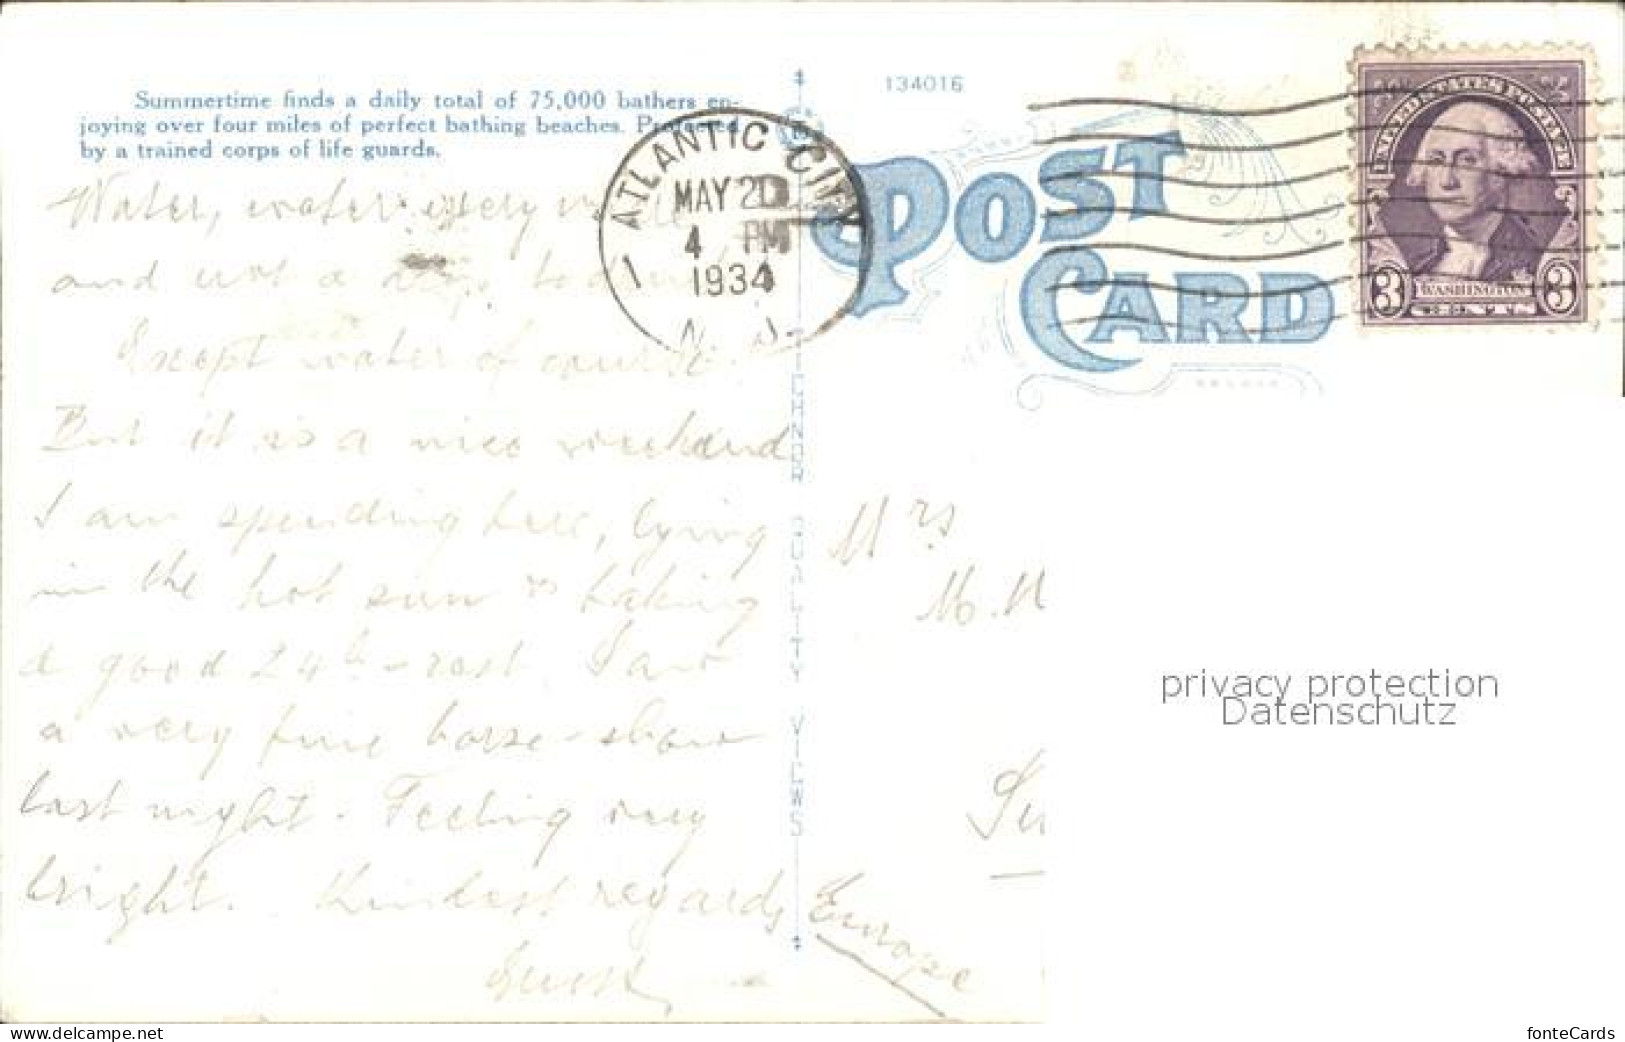 Summertime finds a daily total of 75,000 bathers en-
joying over four miles of perfect bathing beaches. Protected
by a trained corps of life guards.
134016
POST
CARD
ATLANTIC CITY
MAY 20
4 PM
1934
N. J.
1
WASHINGTON
3 3
Water, water every
and not a drop to
Except water of course.
But it is a nice weekend
I am spending here, lying
in the hot sun & taking
a good 24h-rest. Saw
a very fine horse-show
last night. Feeling very
bright. Kindest regards
Mrs
M.
Su
Europe
privacy protection
Datenschutz
www.delcampe.net
fonteCards